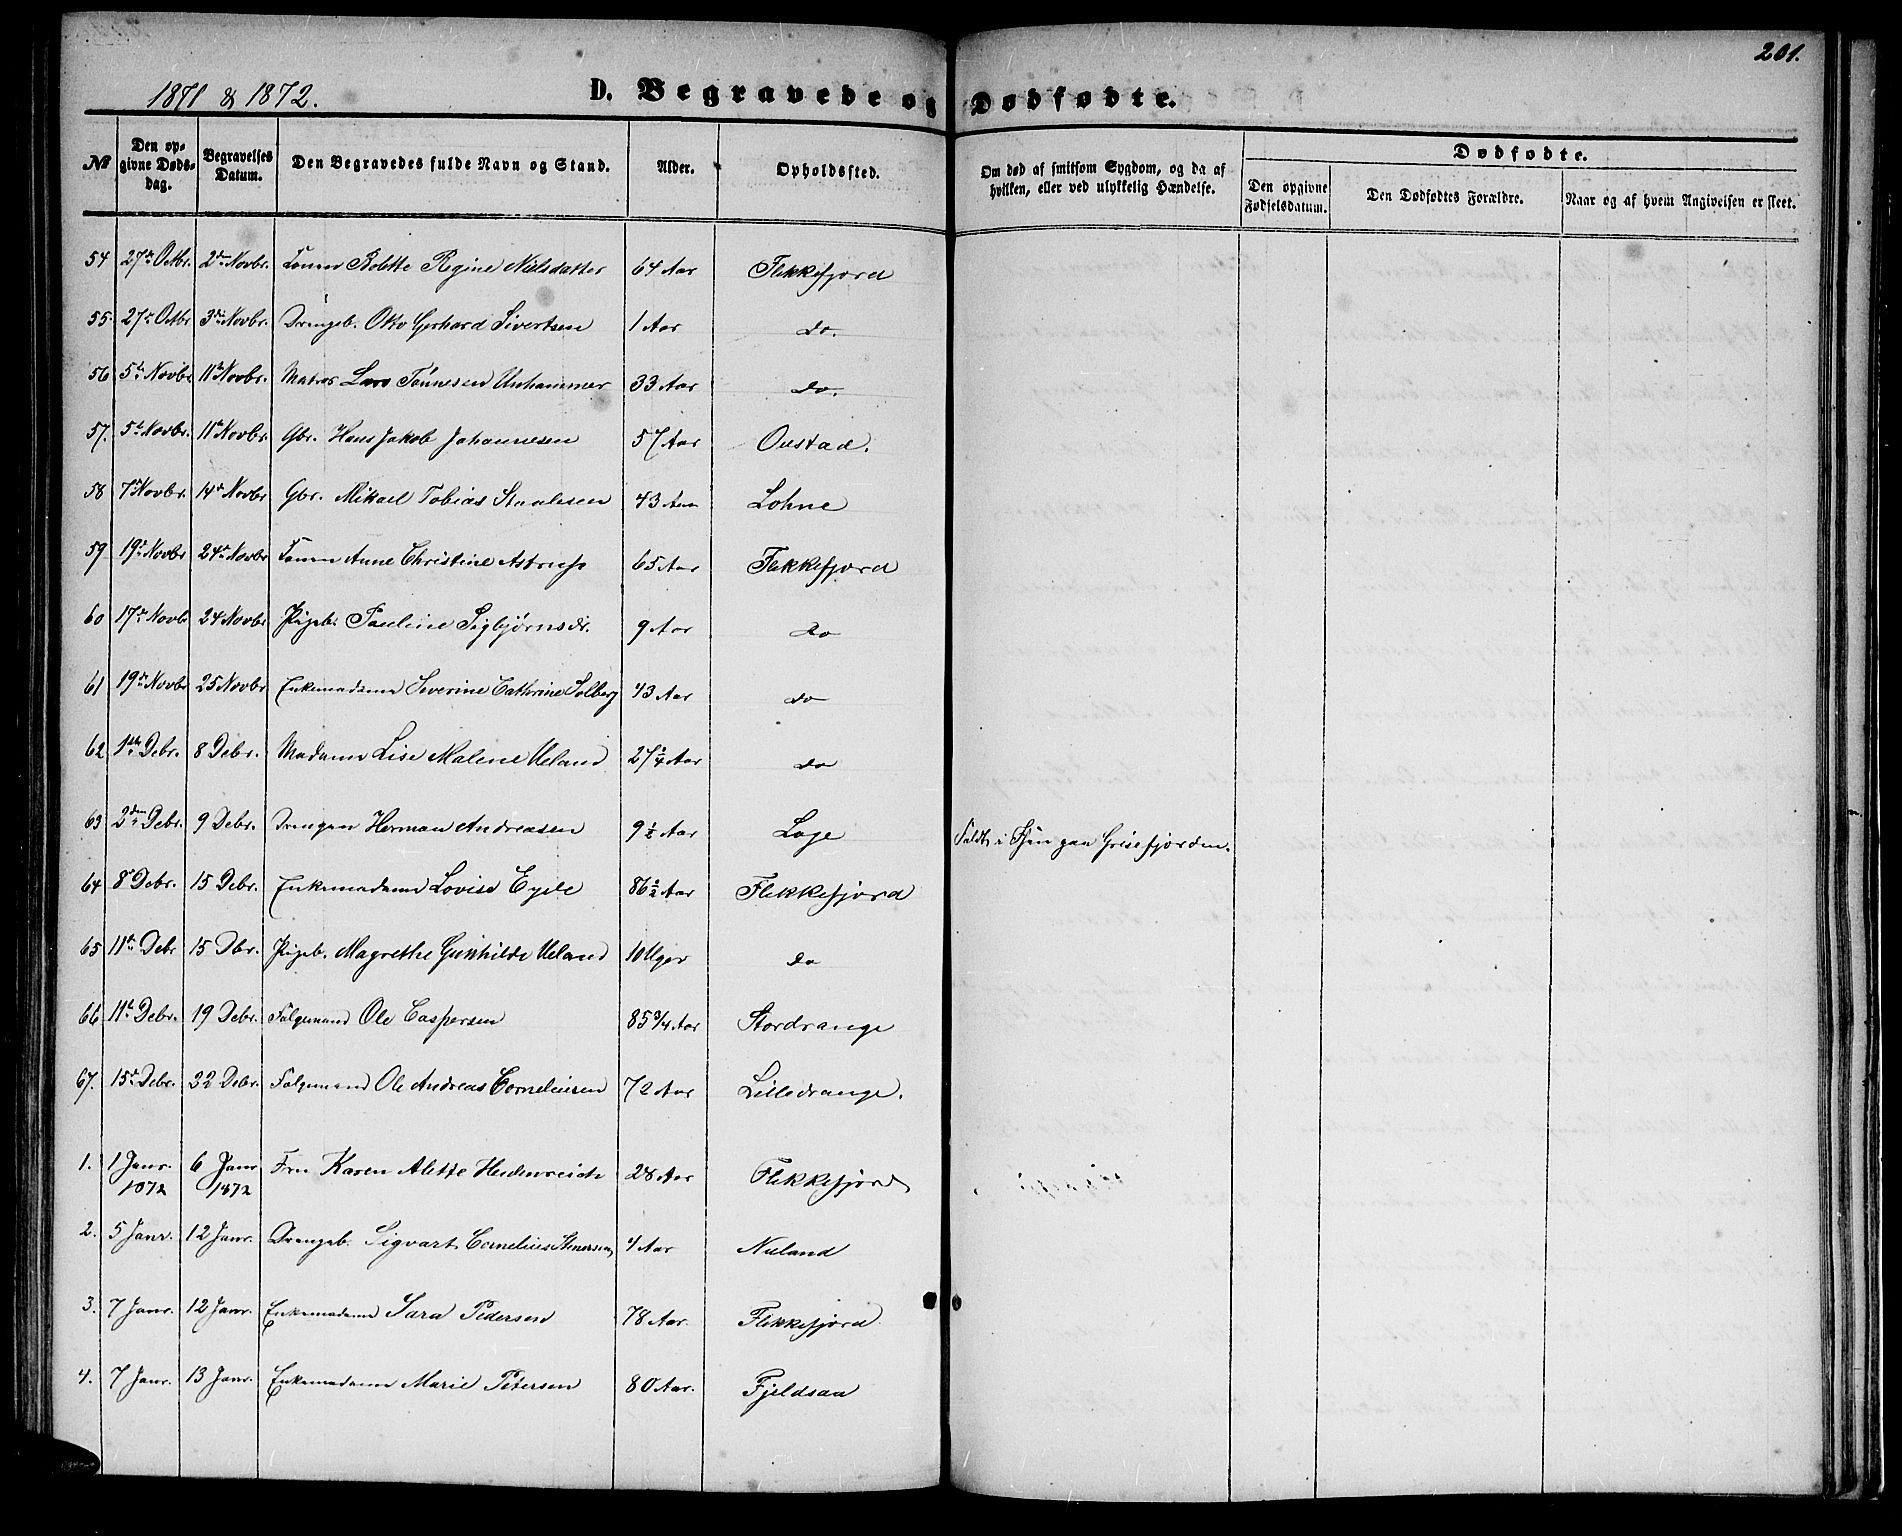 201.
1871 & 1872.
D. Begravede og Dødfødte.
No
Den opgivne Dødsdag.
Begravelses Datum.
Den Begravedes fulde Navn og Stand.
Alder.
Opholdssted.
Om død af smitsom Sygdom, og da af hvilken, eller ved ulykkelig Hændelse.
Dødfødte.
Den opgivne Fødselsdatum.
Den Dødfødtes Forældre.
Naar og af hvem Angivelsen er skeet.
54 27de Octbr. 2den Novbr. Konen Bolette Regine Nielsdatter 64 Aar Flekkefjord
55. 27de Octbr 3de Novbr. Drengeb. Otto Gerhard Sivertsen 1 Aar do.
56 5te Novbr 11te Novbr. Matros Lars Tønnesen Unhammer 33 Aar do.
57. 5te Novbr. 11te Novbr. Gbr. Hans Jakob Johannesen 57 Aar Oustad.
58 7de Novbr. 14de Novbr Gbr. Mikael Tobias Staalesen 43 Aar Lohne
59 19de Novbr 24de Novbr Konen Anne Christine Astrup 65 Aar Flekkefjord
60 17de Novbr 24 Novbr Pigeb. Pauline Sigbjørnsdr. 9 Aar do
61 19de Novbr 25 Novbr Enkemadame Severine Cathrine Solberg 43 Aar do
62 1ste Debr. 8 Debr. Madame Lise Malene Ueland 27 3/4 Aar do
63 2den Debr. 9 Debr. Drengen Herman Andreasen 9 1/2 Aar Loge
64 8de Debr. 15 Debr. Enkemadame Lovise Eyde 86 1/2 Aar Flekkefjord
65 11te Debr 15 Dbr. Pigeb. Magrethe Gunhilde Ueland 10 Uger do
66 11te Debr. 19 Debr. Følgemand Ole Caspersen 85 3/4 Aar Stordrange
67. 15de Debr. 22 Debr. Følgemand Ole Andreas Corneliusen 72 Aar Lilledrange.
1. 1 Janr. 1872 6 Janr 1872 Fru Karen Alette Heidenreich 28 Aar Flekkefjord
2. 5 Janr. 12 Janr. Drengeb. Sigvart Cornelius Stenersen 4 Aar Nuland
3. 7 Janr. 12 Janr. Enkemadame Sara Pedersen 78 Aar. Flekkefjord
4. 7 Janr. 13 Janr. Enkemadame Marie Petersen 80 Aar. Fjeldsaa